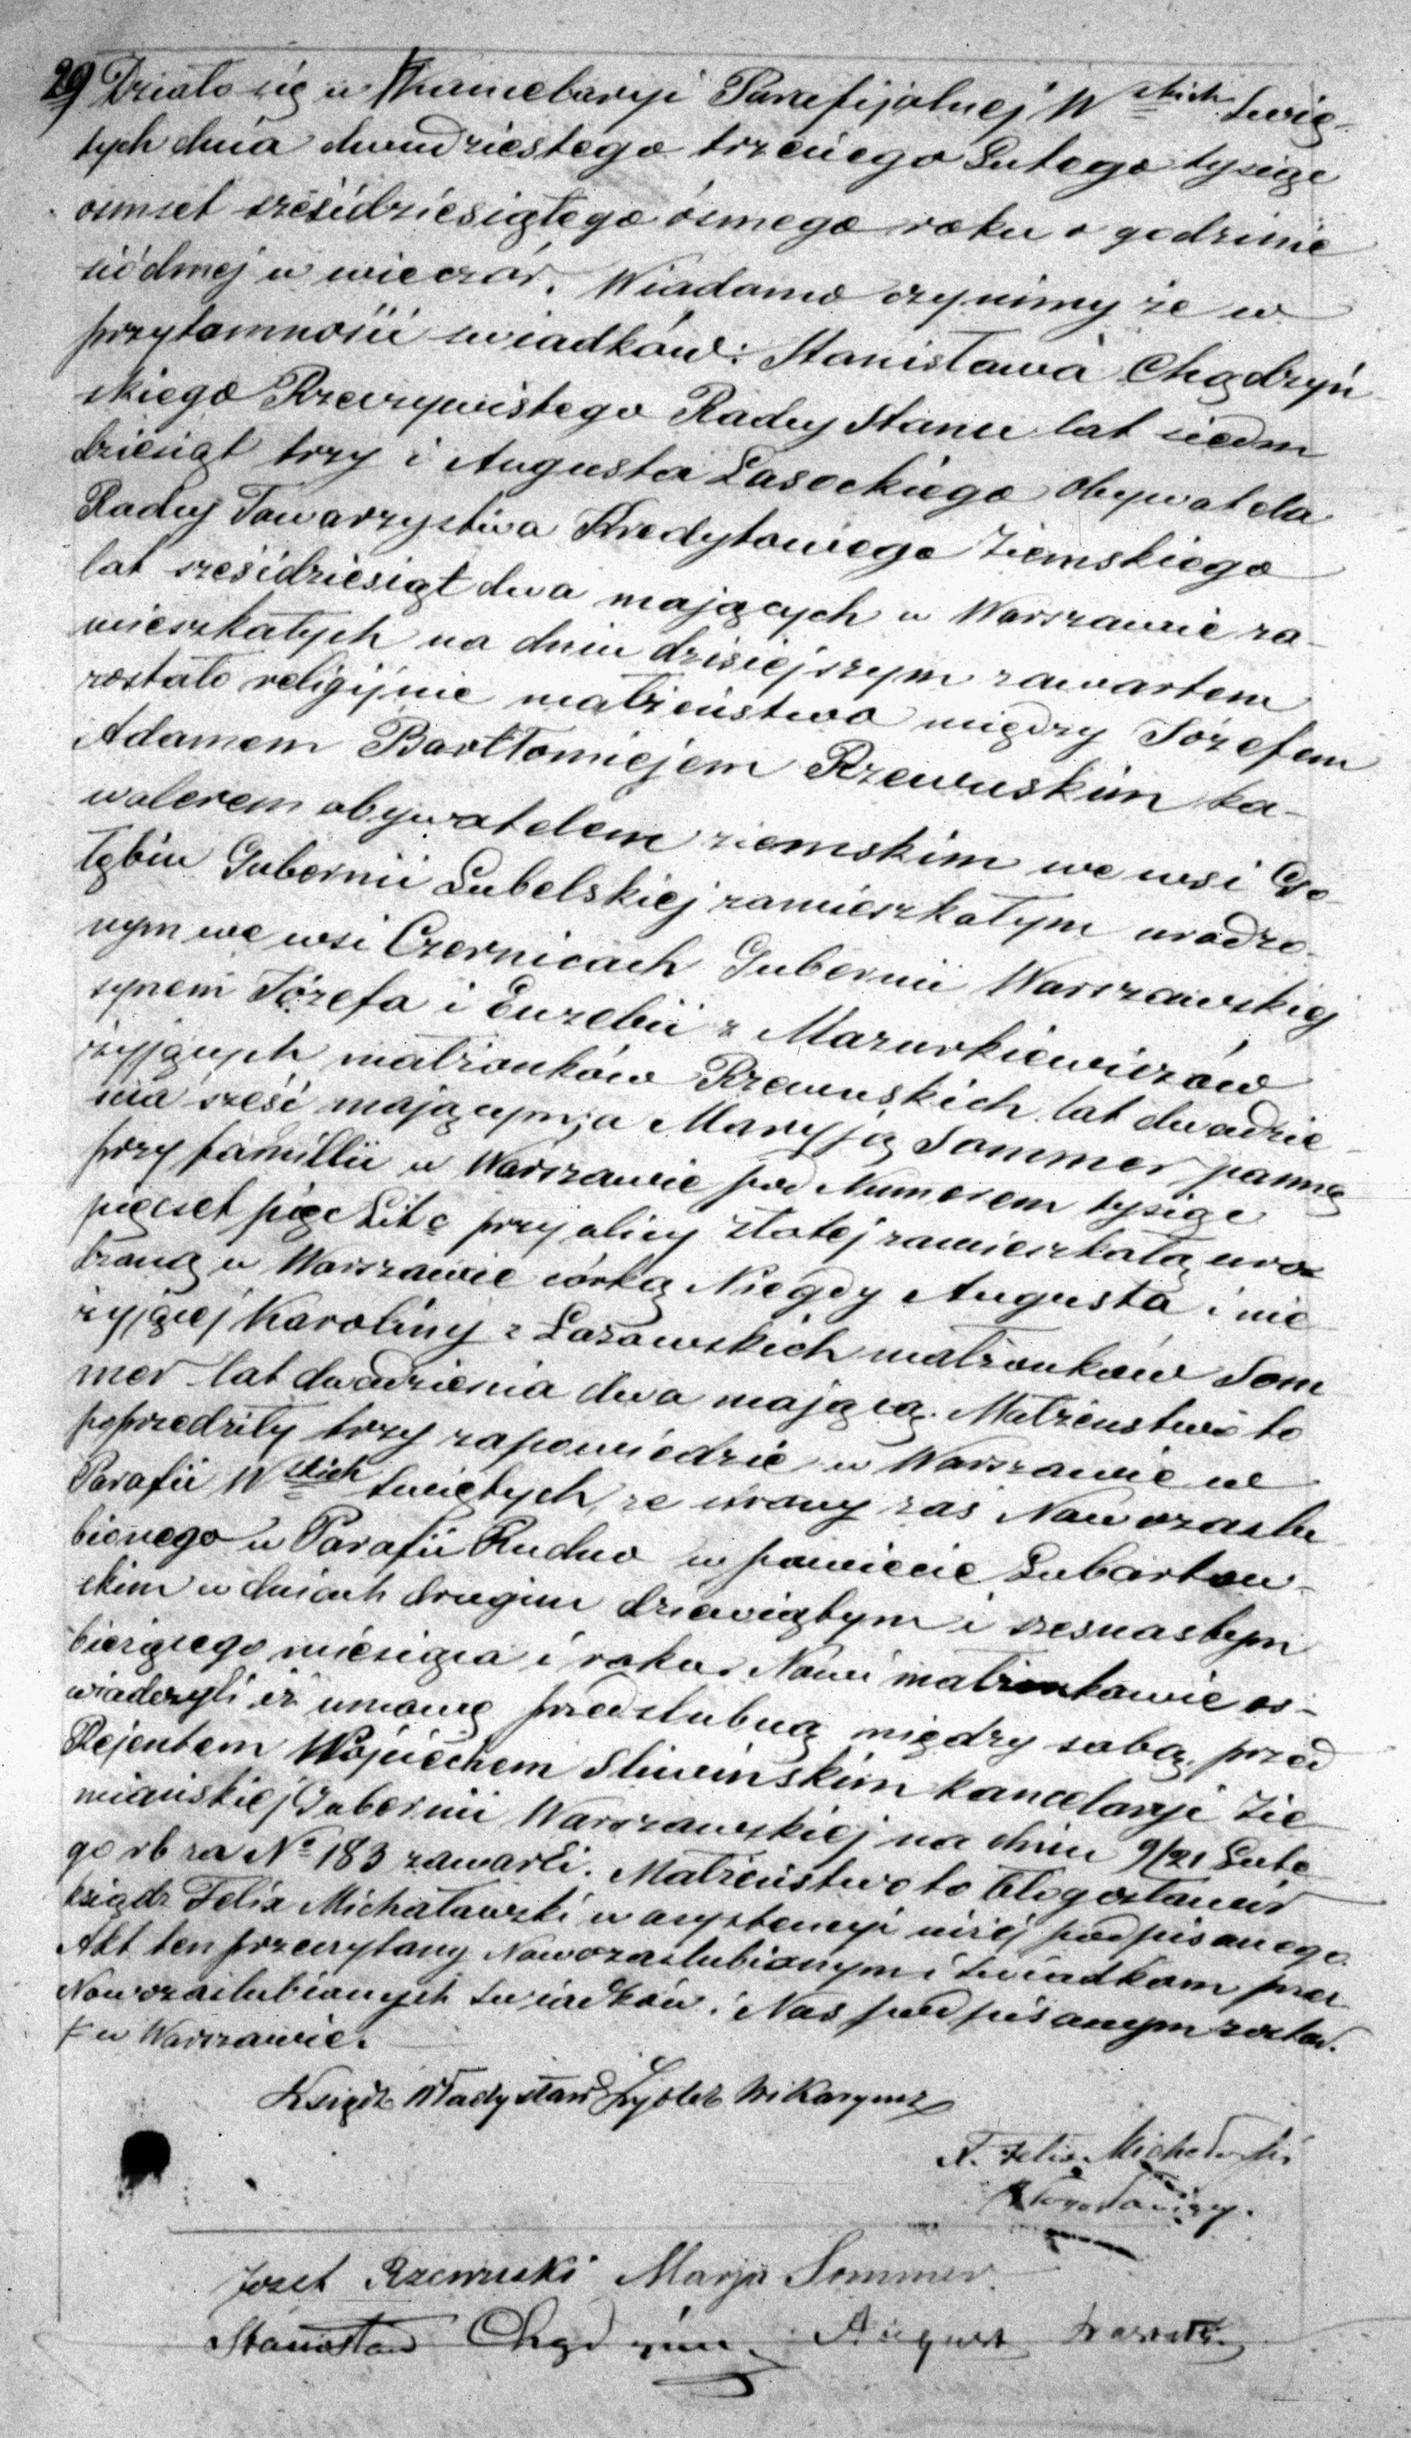 29 Działo się w Kancelaryi Parafijalnej Wstkich Świę-
tych dnia dwudziestego trzeciego Lutego tysiąc
osmset sześćdziesiątego ósmego roku o godzinie
siódmej w wieczór. Wiadomo czynimy że w
przytomności swiadków: Stanisława Chądzyń
skiego Rzeczywistego Radcy Stanu lat siedm
dziesiąt trzy i Augusta Lasockiego obywatela
Radcy Towarzystwa Kredytowego Ziemskiego
lat sześćdziesiąt dwa mających w Warszawie za-
mieszkałych na dniu dzisiejszym zawartem
zostało religijnie małżeństwo między Józefem
Adamem Bartłomiejem Rzewuskim ka-
walerem obywatelem ziemskim we wsi Go-
łębiu Gubernii Lubelskiej zamieszkałym urodzo-
nym we wsi Czernicach Gubernii Warszawskiej
synem Józefa i Euzebii z Mazurkiewiczów
żyjących małżonków Rzewuskich lat dwadzie
ścia sześć mającym; a Maryją Sommer panną
przy familii w Warszawie pod Numerem tysiąc
pięcset pięć Lit c przy ulicy Złotej zamieszkałą uro
dzoną w Warszawie córką Niegdy Augusta i nie
żyjącej Karoliny z Lasowskich małżonków Som
mer lat dwadzieścia dwa mającą. Małżeństwo to
poprzedziły trzy zapowiedzie w Warszawie w
Parafii Wstkich Świętych, ze strony zaś Nowozaślu
bionego w Parafii Rudno w powiecie Lubartow-
skim w dniach drugim dziewiątym i szesnastym
bieżącego miesiąca i roku. Nowi małżonkowie oś-
wiadczyli iż umowę przedślubną między sobą przed
Rejentem Wojciechem Śliwińskim kancelaryi Zie
miańskiej Gubernii Warszawskiej na dniu 9/21 Lute
go rb za No 183 zawarli. Małżeństwo to błogosławił
ksiądz Felix Michałowski w asystencyi niżej podpisanego
Akt ten przeczytany Nowozaślubionym i świadkom przez
Nowozaślubionych świadków i Nas podpisanym został.
w Warszawie.
Ksiądz Władysław Wikaryusz
X. Felix Michałowski
Błogosławiący.
Józef Rzewuski Marja Sommer
Stanisław Chądzyński August Lasocki